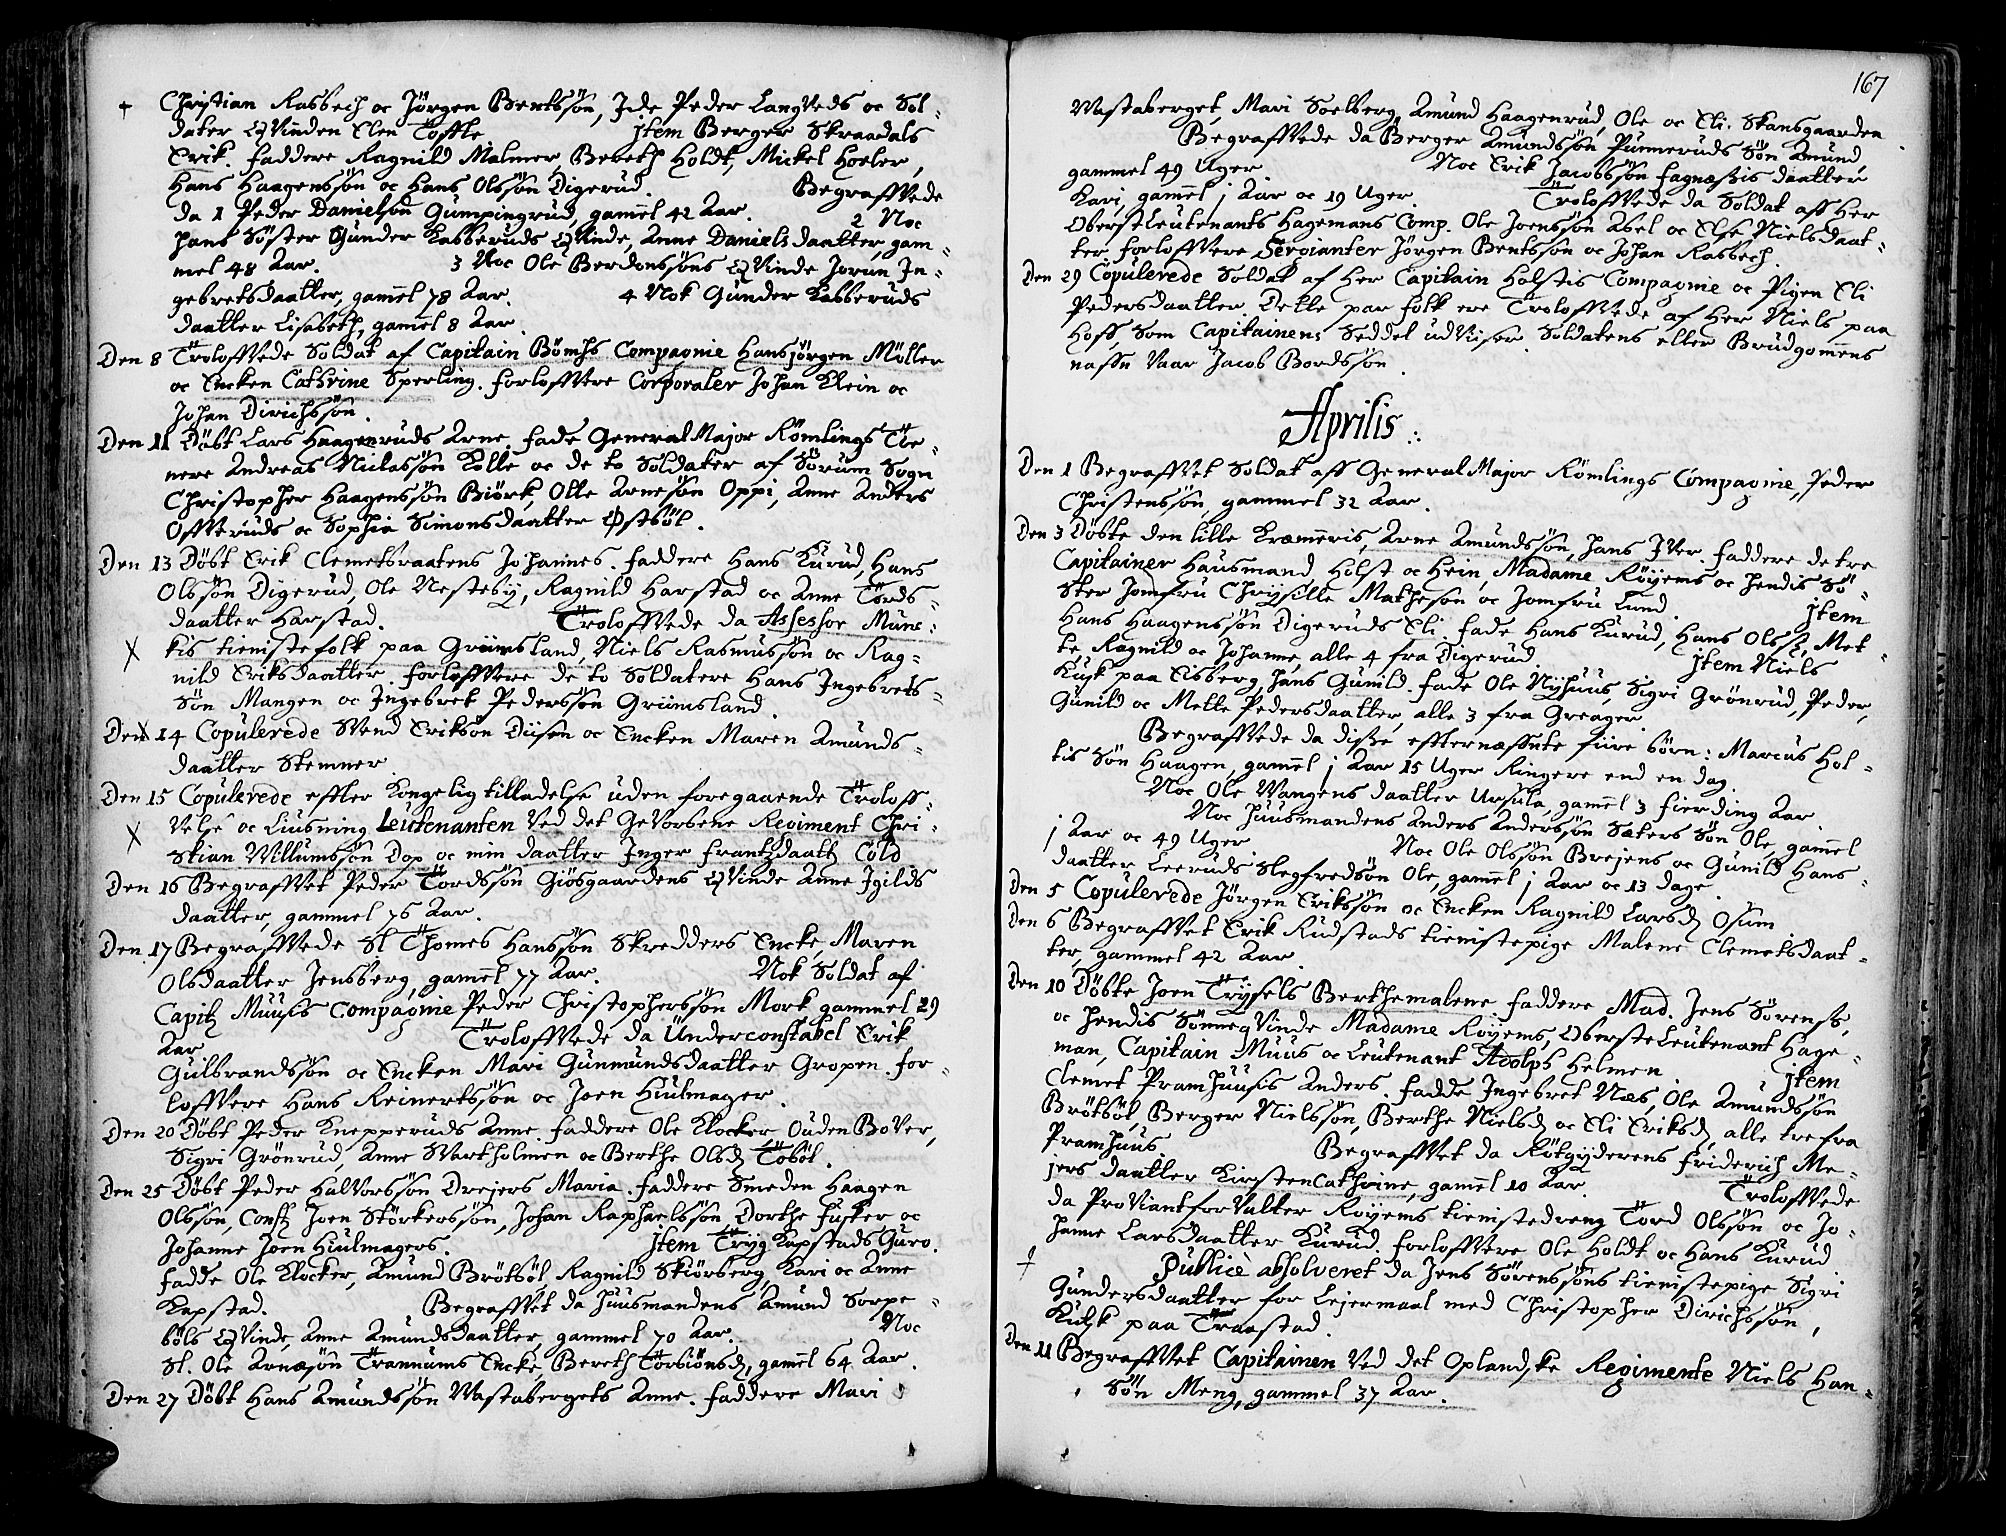 Christian Rasbech oc Jörgen Bentssön, Jtde Peder Langveds oc Sol-
dater Qvinden Elen Töffle jtem Berger Skraadals
Erik. Faddere Ragnild Malmer, Bereth Holdt, Mickel Hoeler,
Hans Haagenssön oc Hans Olssön Digerud. Begraffvede
da 1 Peder Danielsön Gumpingrud, gamel 42 Aar. 2 Noc
hans Söster Gunder Kasseruds Qvinde, Anne Danielsdaatter, gam-
mel 48 Aar. 3 Noc Ole Berdonssöns Qvinde Jorun In-
gebretsdaatter, gamel 78 Aar. 4 Nok Gunder Kasseruds
daatter Lisabeth, gamel 8 Aar.
Den 8 Troloffvede Soldat af Capitain Bömhs Compagnie Hansjörgen Möller
oc Encken Cathrine Sperling. Forloffvere Corporaler Johan Klein oc
Johan Dirichssön.
Den 11 Döbt Lars Haagenruds Arne. Fadde General Major Römlings Tie-
nere Andreas Niclassön Kolle oc de to Soldater af Sörum Sogn
Christopher Haagenssön Biörk, Olle Arnesön Oppi, Anne Anders
Offveruds oc Sophia Simonsdaatter Östböl.
Den 13 Döbt Erik Clemetsraatens Johannes. Faddere Hans Kurud, Hans
Olssön Digerud, Ole Nesteby, Ragnild Harstad oc Anne Tords-
daatter Harstad. Troloffvede da Assessor Munc-
kis tienistefolk paa Grimsland, Niels Rasmussön oc Rag-
nild Eriksdaatter. Forloffvere de to Soldatere Hans Ingebrets-
sön Mangen oc Ingebret Pederssön Grimsland.
Den 14 Copulerede Svend Eriksön Diisen oc Encken Maren Amunds-
daatter Stemner.
Den 15 Copulerede effter Kongelig tilladelse uden foregaaende Troloff-
velse oc Liusning Leutenanten ved det Gevorbene Regiment Chri-
stian Willumssön Dop oc min daatter Inger Frantzdaattr Cold
Den 16 Begraffvet Peder Tordssön Giösgaardens Qvinde Anne Igilds
daatter, gammel 76 Aar.
Den 17 Begraffvede Sl. Thomes Hanssön Skredders Encke, Maren
Olsdaatter Jensberg, gamel 77 Aar. Nok Soldat af
Capitz Muusis Compagnie Peder Christopherssön Mork gammel 29
Aar. Troloffvede da Underconstabel Erik
Gulbrandssön oc Encken Mari Gunmundsdaatter Gropen. For-
loffvere Hans Reinertssön oc Joen Hiulmager.
Den 20 Döbt Peder Knepperuds Anne. Faddere Ole Klocker, Ouden Bover,
Sigri Grönrud, Anne Svartholmen oc Berthe Olsd Töböl.
Den 25 Döbt Peder Halvorssön Drejers Maria. Faddere Smeden Haagen
Olssön, Const Joen Störkerssön, Johan Raphaelssön, Dorthe Fusker oc
Johanne Joen Hiulmagers. Jtem Tryg Kapstads Guro.
Fadde Ole Klocker, Amund Brötsöl, Ragnild Skiörberg, Kari oc Anne
Kapstad. Begraffvet da Huusmandens Amund Sorpe-
böls Qvinde, Anne Amundsdaatter, gammel 70 Aar. Noc
Sl. Ole Arnesön Trannums Encke, Bereth Torbiönsd, gamel 64 Aar.
Den 27 Döbt Hans Amundssön Vastabergets Anne. Faddere Mari
167
Vastaberget, Mari Soelberg, Amund Haagenrud, Ole oc Eli. Skansgaarden
Begraffvede da Berger Amundssön Punneruds Sön Amund,
gammel 49 Uger. Noc Erik Jacobssön Fagnessis daatter
Kari, gamel j Aar oc 19 Uger. Troloffvede da Soldat aff Her
OberstLeutenants Hagemans Comp. Ole Joenssön Abel oc Else Nielsdaat-
ter forloffvere Sergianter Jörgen Bentssön oc Johan Rasbech.
Den 29 Copulerede Soldat af Her Capitain Holstis Compagnie oc Pigen Eli
Pedersdaatter. Dette par folk ere Troloffvede af Her Niels paa
Hoff, som Capitainens Seddel udviiser. Soldatens eller Brudgommens
naffn vaar Jacob Bordssön.
Aprilis.
Den 1 Begraffvet Soldat aff General Major Römlings Compagnie, Peder
Christenssön, gammel 32 Aar.
Den 3 Döbte den lille Kræmeris, Arne Amundssön, hans Iver. Faddere de tre
Capitainer Hausmand, Holst oc Hein, Madame Röyems oc hendis Sö-
ster Jomfru Chrysille Matheson oc Jomfru Lund. jtem
Hans Haagenssön Digeruds Eli. Fadde Hans Kurud, Hans Olss, Met-
te Ragnild oc Johanne, alle 4 fra Digerud. jtem Niels
Kusk paa Eisberg hans Gunild. Fadde Ole Nyhuus, Sigri Grönrud, Peder,
Gunild oc Mette Pedersdaatter, alle 3 fra Greager.
Begraffvede da disse effternæffnte fiire börn: Marcus Hol-
tis Sön Haagen, gamel j Aar 15 Uger Ringere end en dag
Noc Ole Wangens daatter Ursula, gamel 3 fierding Aar
Noc Huusmandens Anders Anderssön Sæters Sön Ole, gamel
j Aar oc 49 Uger. Noc Ole Olssön Brejens oc Gunild Hans-
daatter Leeruds Slegfredsön Ole, gamel j Aar oc 13 dage.
Den 5 Copulerede Jörgen Erikssön oc Encken Ragnild Larsd Osum
Den 6 Begraffvet Erik Rudstads tienistepige Malene Clemetsdaat-
ter, gammel 42 Aar.
Den 10 Döbte Joen Trysels Berthemalene faddere Mad. Jens Sörenss,
oc hendis Sönneqvinde Madame Röyems, OberstLeutenant Hage-
man, Capitain Muus oc Leutenant Adolph Helmen jtem
Clemet Pramhuusis Anders. Fadde Ingebret Næs, Ole Amundssön
Brötsöl, Berger Nielssön, Berthe Nielsd oc Eli Eriksd, alle tre fra
Pramhuus. Begraffvet da Rötgyderens Friderich Me-
jers daatter Kirsten Cathrine, gamel 10 Aar. Troloffvede
da Proviantforvalter Röyems tienistedreng Tord Olssön oc Jo-
hanne Larsdaatter Kurud. Forloffvere Ole Holdt oc Hans Kurud
Publicè absolveret da Jens Sörenssöns tienistepige Sigri
Gundersdaatter for Lejermaal med Christopher Dirichssön,
Kusk paa Traastad.
Den 11 Begraffvet Capitainen ved det Oplandske Regimente Niels Han-
sön Meng, gammel 37 Aar.